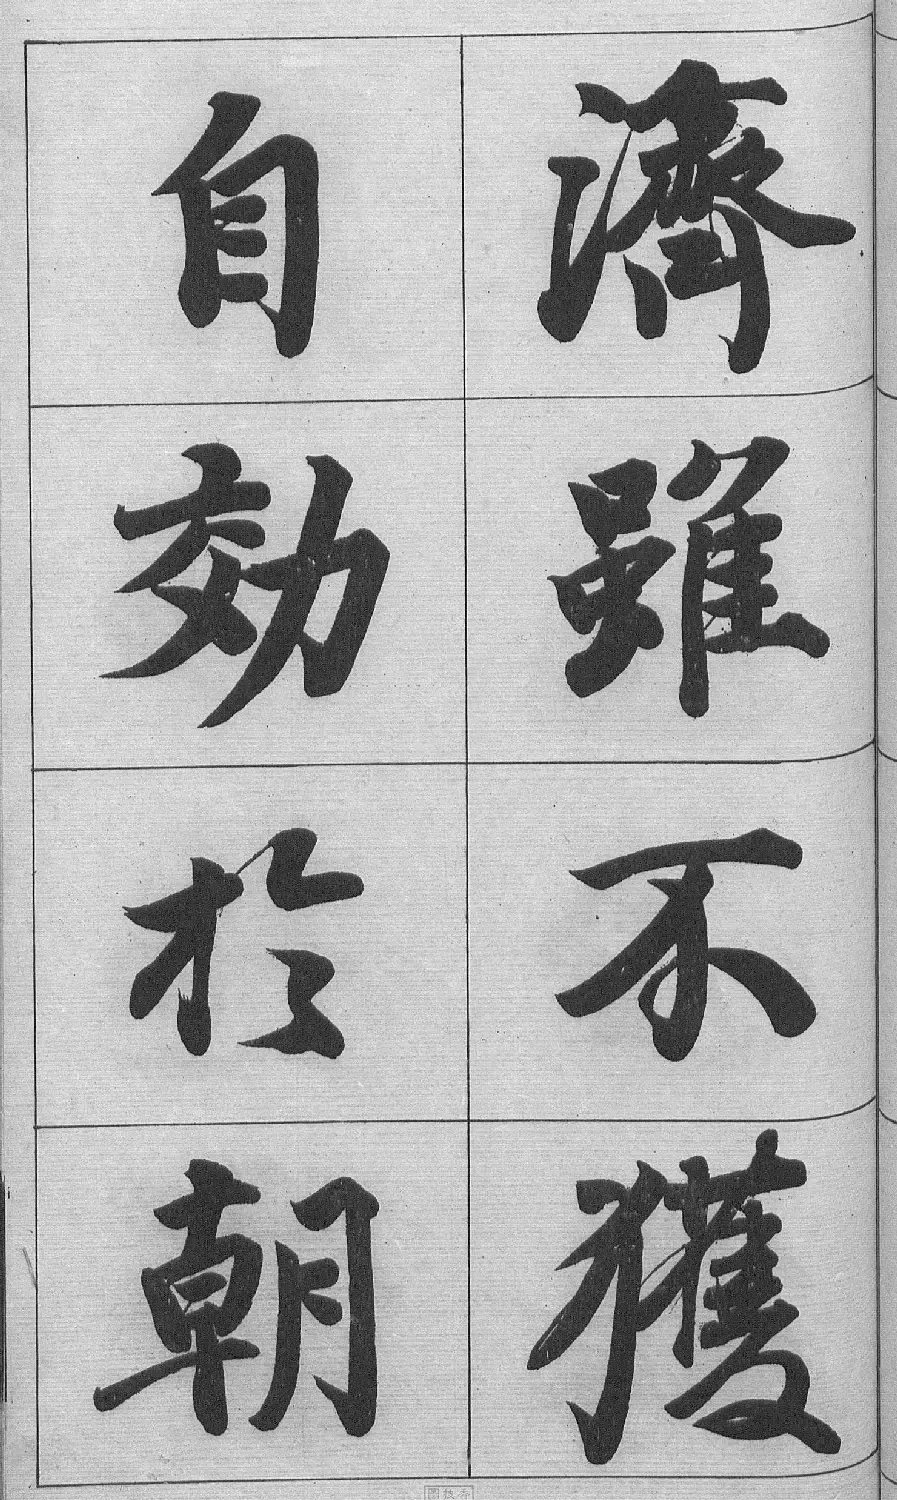 濟雖不獲
自効於朝